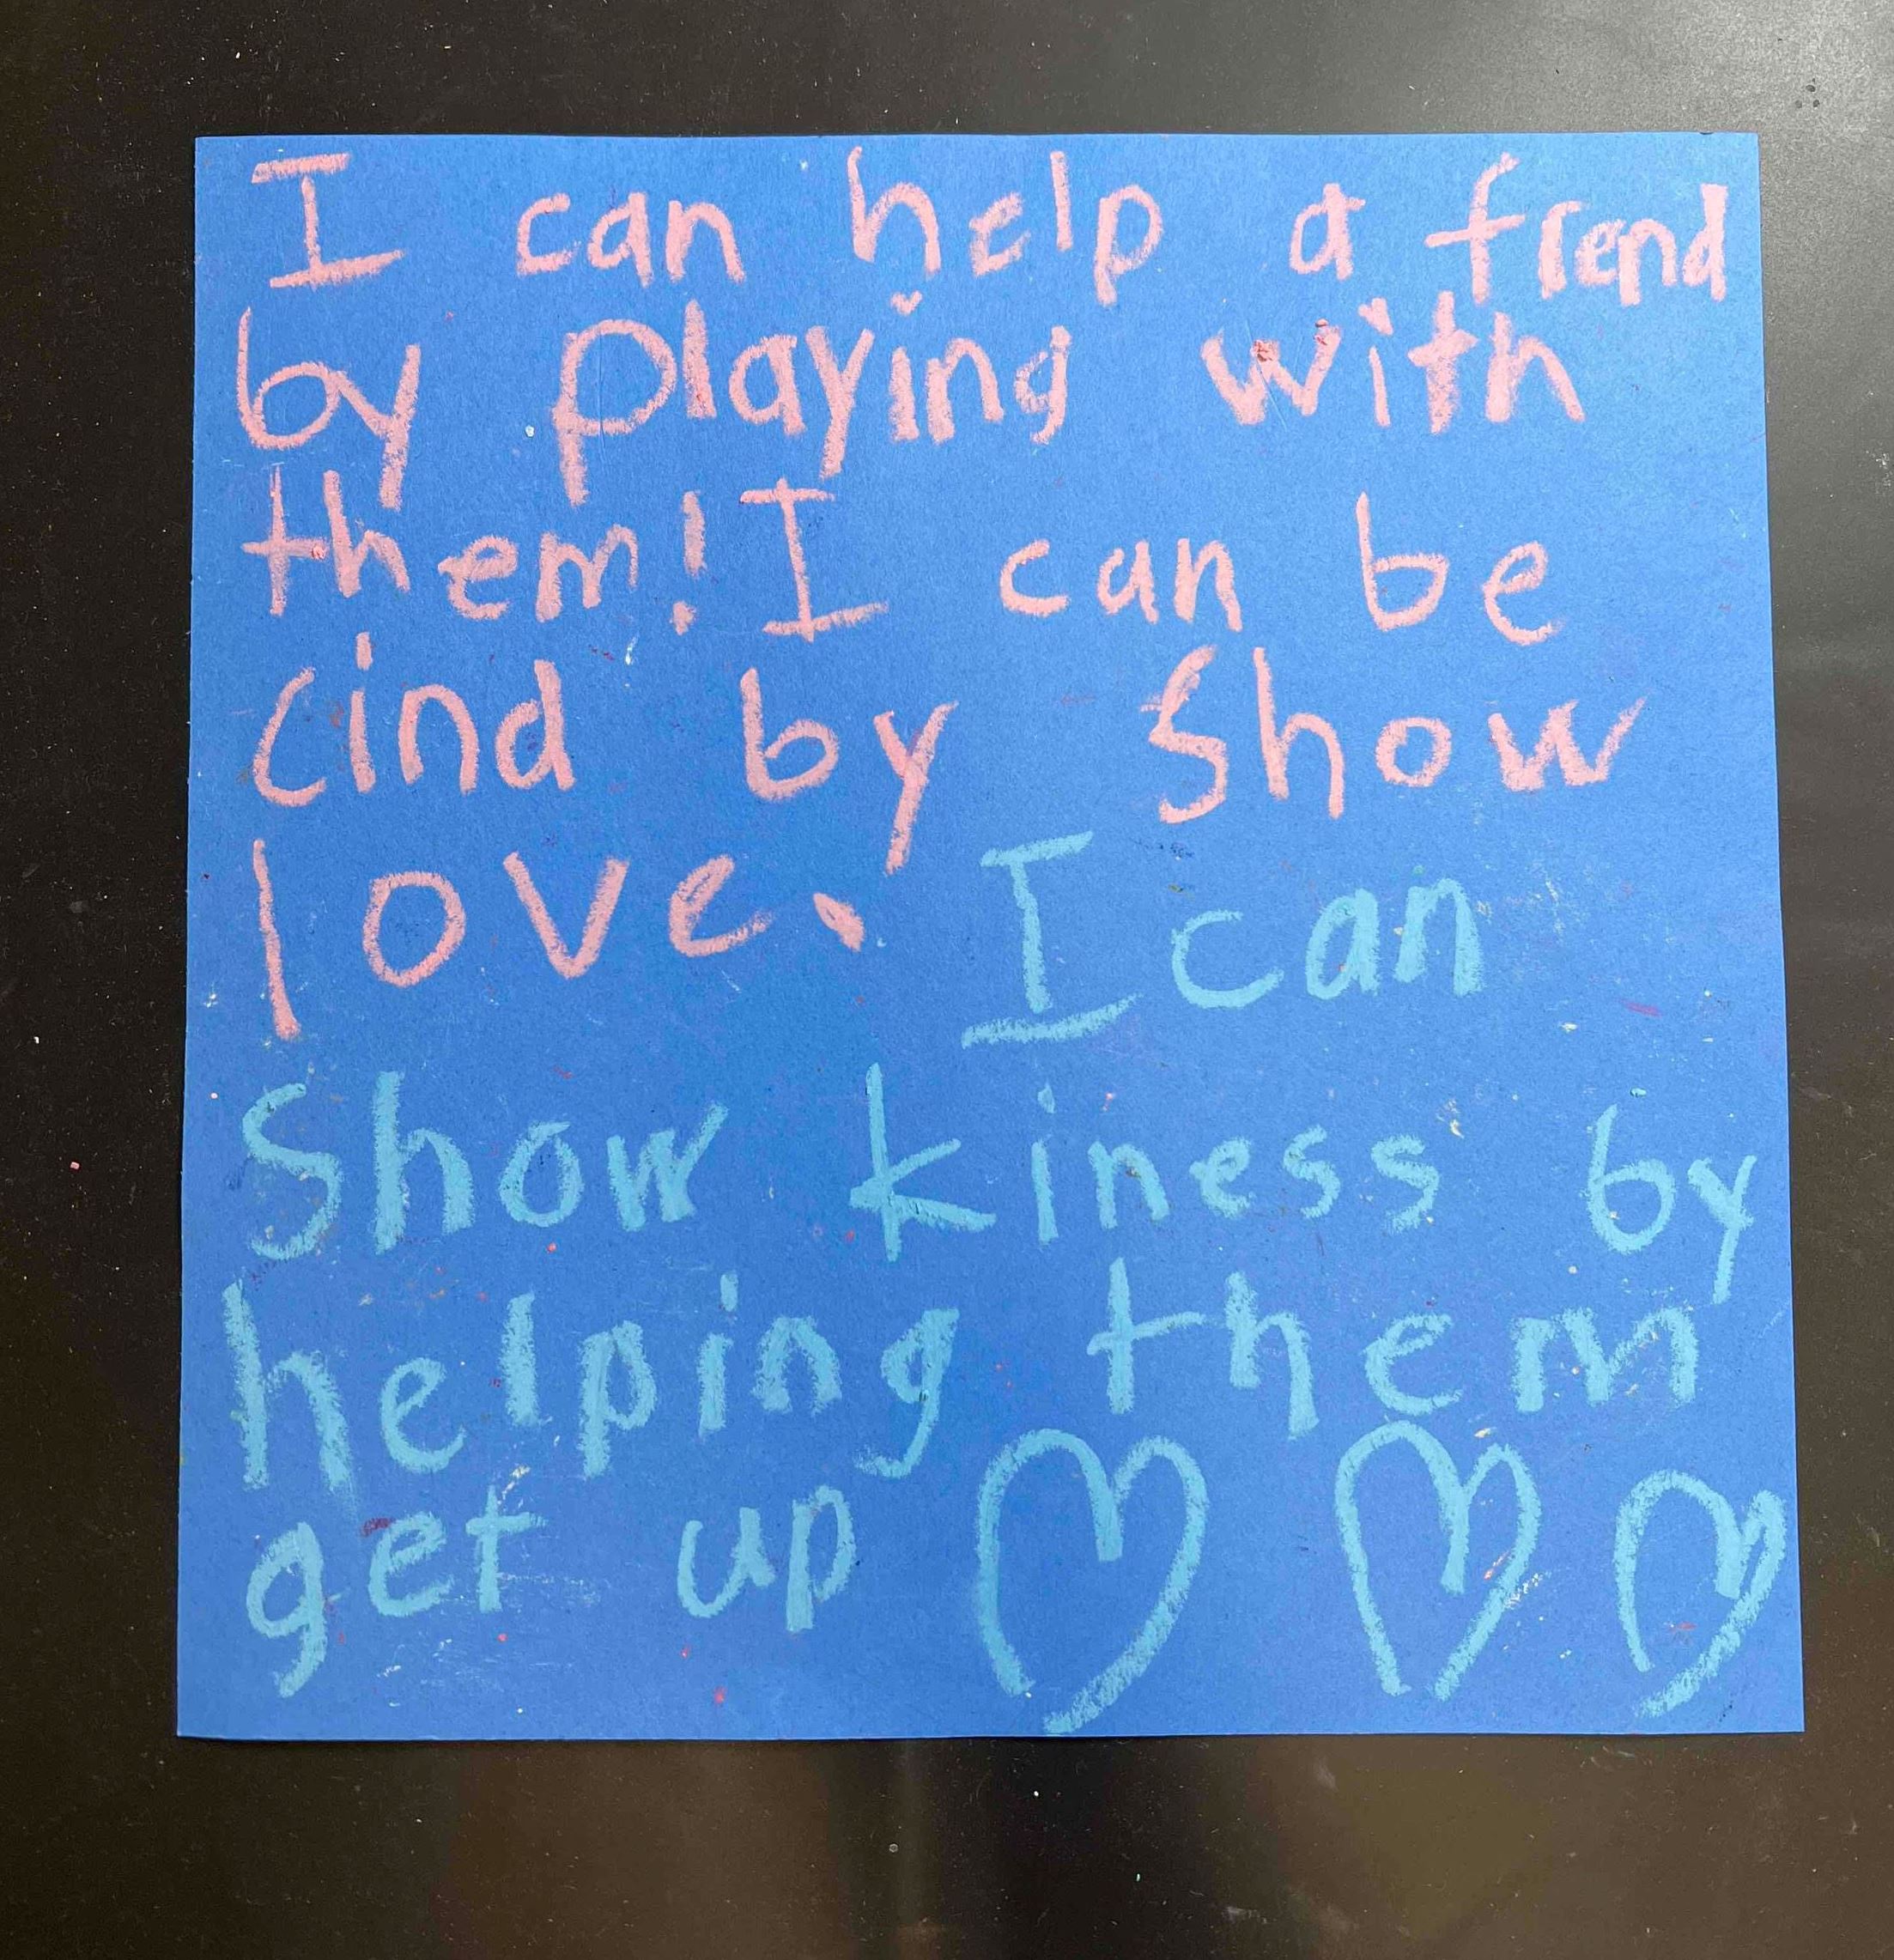 I can help a frend
by playing with
them! I can be
cind by show
love. I can
show kiness by
helping them
get up